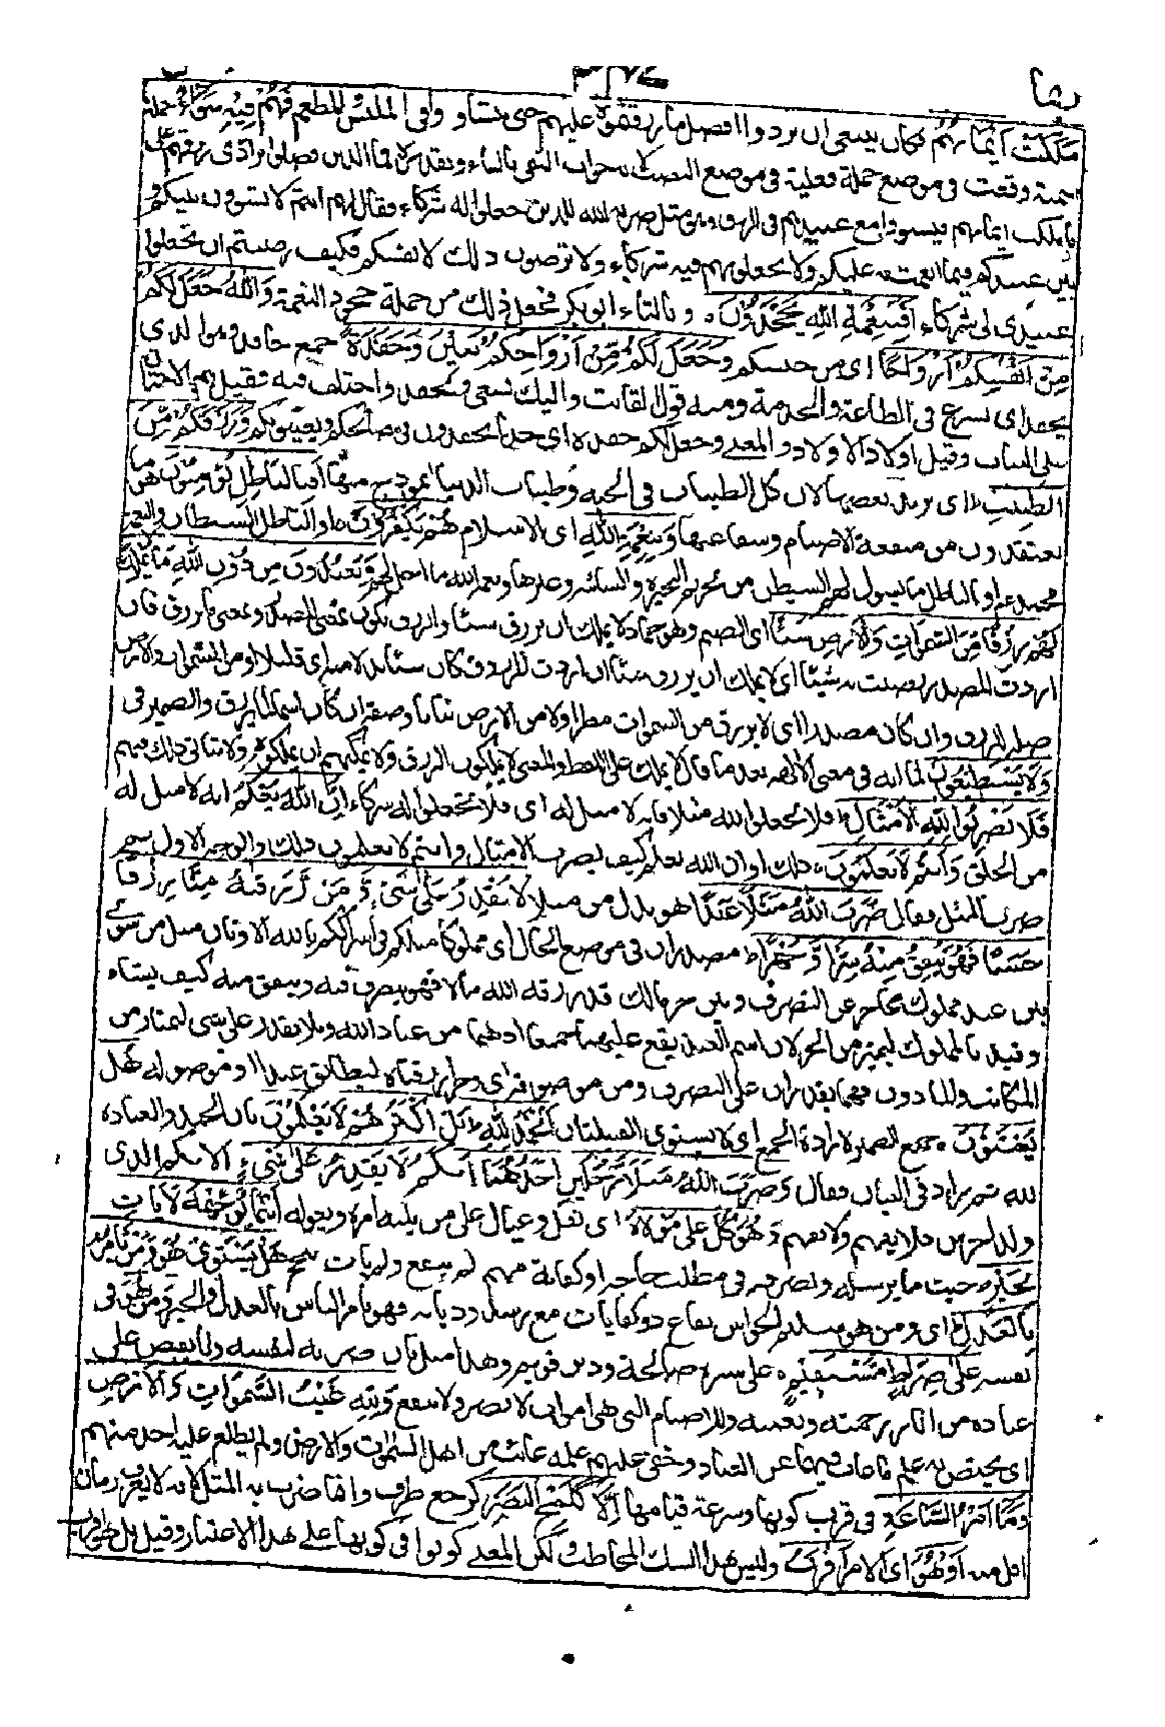 ربما
ملكت ايمانهم فكان ينبغى ان يردوا افضل ما رزقوه عليهم حتى يتساووا فى الملبس والمطعم فهم فيه سواء جملة
اسمية وقعت فى موضع جملة فعلية فى موضع النصب لانه جواب النفى بالفاء وتقديره فما الذين فضلوا برادى رزقهم على
ما ملكت ايمانهم فيستووا مع عبيدهم فى الرزق وهو مثل ضربه الله للذين جعلوا له شركاء فقال لهم انتم لا تسوون بينكم و
بين عبيدكم فيما انعمت به عليكم ولا تجعلونهم فيه شركاء ولا ترضون ذلك لانفسكم فكيف رضيتم ان تجعلوا
عبيدى لى شركاء افبنعمة الله يجحدون ٥ وبالتاء ابو بكر فجعل ذلك من جملة جحود النعمة والله جعل لكم
من انفسكم ازواجا اى من جنسكم وجعل لكم من ازواجكم بنين وحفدة جمع حافد وهو الذى
يحفد اى يسرع فى الطاعة والخدمة ومنه قول القانت واليك نسعى ونحفد واختلف فيه فقيل هم الاختان
على البنات وقيل اولاد الاولاد والمعنى وجعل لكم حفدة اى خدما يحفدون فى مصالحكم ويعينونكم ورزقكم من
الطيبت اى بعضها لان كل الطيبات فى الجنة وطيبات الدنيا انموذج منها افبالباطل يؤمنون هو ما
يعتقدون من منفعة الاصنام وشفاعتها وبنعمت الله اى الاسلام هم يكفرون ٥ او الباطل الشيطان والنعمة
محمد عم او الباطل ما يسول لهم الشيطن من تحريم البحيرة والسائبة وغيرها ونعمة الله ما احل لهم ويعبدون من دون الله ما لا يملك
لهم رزقا من السموات والارض شيئا اى الصنم وهو جماد لا يملك ان يرزق شيئا والرزق يكون بمعنى المصدر وبمعنى ما يرزق فان
اردت المصدر نصبت به شيئا اى لا يملك ان يرزق شيئا وان اردت المرزوق كان شيئا بدلا منه اى قليلا ومن السموات والارض
صلة للرزق وان كان مصدرا اى لا يرزق من السموات مطرا ولا من الارض نباتا وصفة ان كان اسما لما يرزق والضمير فى
ولا يستطيعون لما لانه فى معنى الآلهة بعد ما قال لا يملك على اللفظ والمعنى لا يملكون الرزق ولا يمكنهم ان يملكوه ولا يتاتى ذلك منهم
فلا تضربوا لله الامثال فلا تجعلوا لله مثلا فانه لا مثل له اى فلا تجعلوا له شركاء ان الله يعلم انه لا مثل له
من الخلق وانتم لا تعلمون ٥ ذلك او ان الله يعلم كيف يضرب الامثال وانتم لا تعلمون ذلك والوجه الاول ثم
ضرب المثل فقال ضرب الله مثلا عبدا هو بدل من مثلا لا يقدر على شىء ومن رزقنه منا رزقا
حسنا فهو ينفق منه سرا وجهرا مصدران فى موضع الحال اى مثلكم فى اشراككم بالله الاوثان مثل من سوى
بين عبد مملوك عاجز عن التصرف وبين حر مالك قد رزقه الله مالا فهو يتصرف فيه وينفق منه كيف يشاء
وقيد بالمملوك ليميزه من الحر لان اسم العبد يقع عليهما جميعا اذ هما من عباد الله وبلا يقدر على شىء ليمتاز من
المكاتب والماذون فهما يقدران على التصرف ومن موصوفة اى وحرا رزقناه ليطابق عبدا او موصولة هل
يستون جمع الضمير لارادة الجمع اى لا يستوى القبيلتان الحمد لله بل اكثرهم لا يعلمون بان الحمد والعبادة
لله ثم زاد فى البيان فقال وضرب الله مثلا رجلين احدهما ابكم لا يقدر على شىء الابكم الذى
ولد اخرس فلا يفهم ولا يفهم وهو كل على مولاه اى ثقل وعيال على من يلى امره ويعوله اينما يوجهه لا يات
بخير حيث ما يرسله ويصرفه فى مطلب حاجة او كفاية مهم لم ينفع ولم يات بنجح هل يستوى هو ومن يامر
بالعدل اى ومن هو سليم الحواس نفاع ذو كفايات مع رشد وديانة فهو يامر الناس بالعدل والخير وهو فى
نفسه على صراط مستقيم على سيرة صالحة ودين قويم وهذا مثل ثان ضربه لنفسه ولما يفيض على
عباده من اثار رحمته ونعمته وللاصنام التى هى اموات لا تضر ولا تنفع ولله غيب السموات والارض
اى يختص به علم ما غاب فيهما عن العباد وخفى عليهم علمه عائب من اهل السموات والارض ولم يطلع عليه احد منهم
وما امر الساعة فى قرب كونها وسرعة قيامها الا كلمح البصر كرجع طرف وانما ضرب به المثل لانه لا يعرف زمان
اقل منه او هو اى الامر اقرب وليس هذا الشك المخاطب ولكن المعنى كونوا فى كونها على هذا الاعتبار وقيل بل هو اقرب